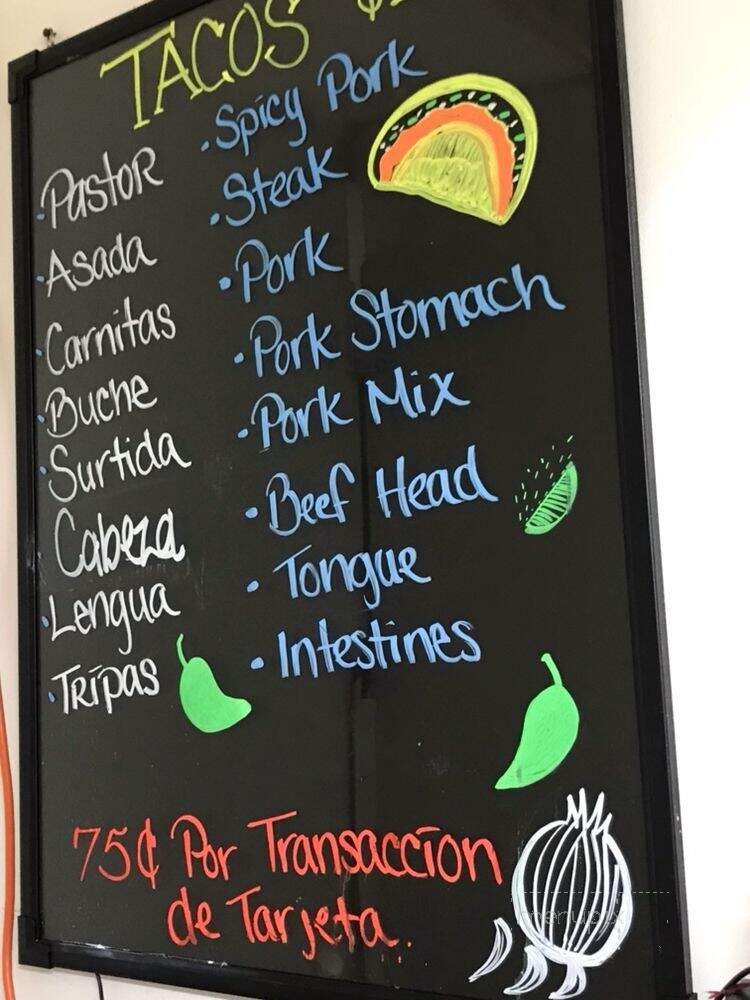 TACOS
Pastor
Asada
Carnitas
Buche
Surtida
Cabeza
Lengua
Tripas
Spicy Pork
Steak
Pork
Pork Stomach
Pork Mix
Beef Head
Tongue
Intestines
75¢ Por Transaccion
de Tarjeta.
menupix